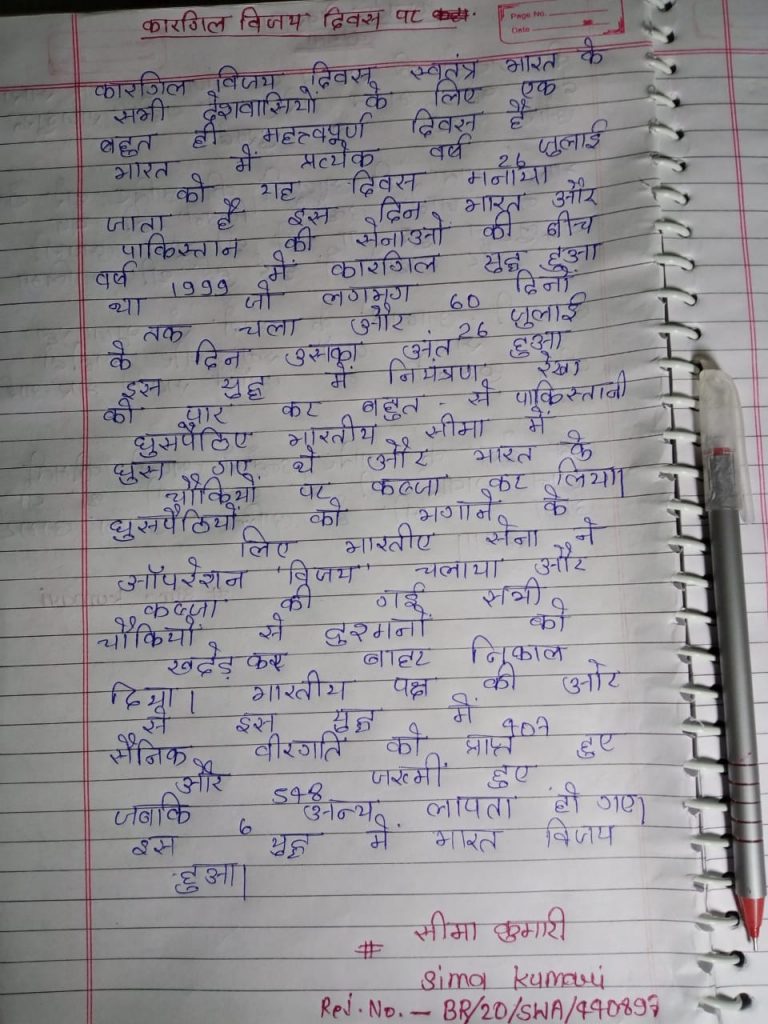 कारगिल विजय दिवस पर
Page No.
Date
कारगिल विजय दिवस स्वतंत्र भारत के
सभी देशवासियों के लिए एक
बहुत ही महत्वपूर्ण दिवस है
भारत में प्रत्येक वर्ष 26 जुलाई
को यह दिवस मनाया
जाता है इस दिन भारत और
पाकिस्तान की सेनाओं की बीच
वर्ष 1999 में कारगिल युद्ध हुआ
था जो लगभग 60 दिनों
तक चला और 26 जुलाई
के दिन उसका अंत हुआ
इस युद्ध में नियंत्रण रेखा
को पार कर बहुत - से पाकिस्तानी
घुसपैठिए भारतीय सीमा में
घुस गए थे और भारत के
चौकियों पर कब्जा कर लिया।
घुसपैठियों को भगाने के
लिए भारतीए सेना ने
ऑपरेशन 'विजय' चलाया और
कब्जा की गई सभी
चौकियों से दुश्मनों को
खदेड़ कर बाहर निकाल
दिया। भारतीय पक्ष की ओर
से इस युद्ध में 407
सैनिक वीरगति को प्राप्त हुए
और 548 जख्मीं हुए
जबकि 6 अन्य लापता हो गए।
इस युद्ध में भारत विजय
हुआ।
# सीमा कुमारी
Sima Kumari
Rej. No. - BR/20/SWA/440897